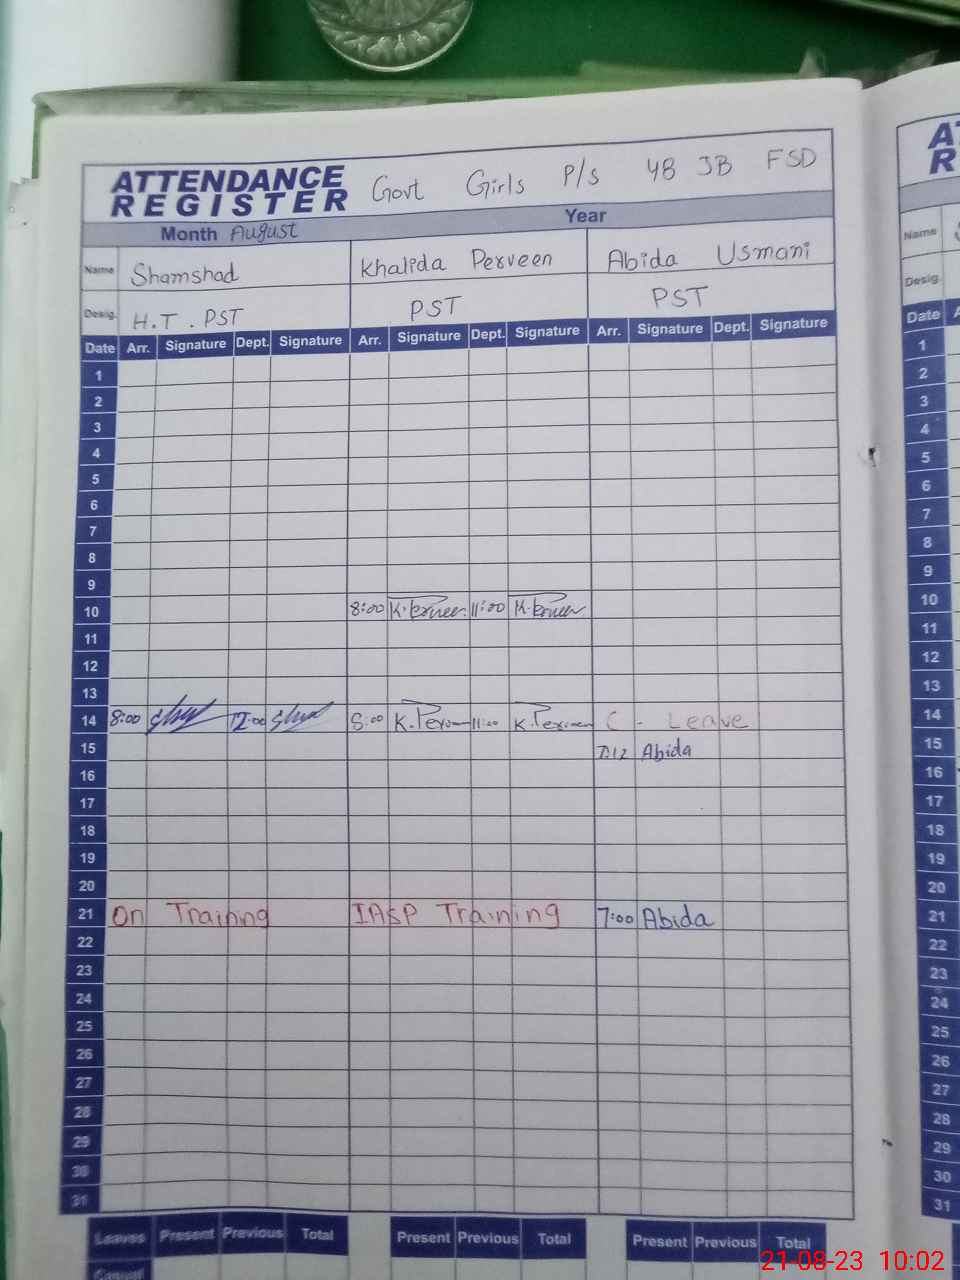 ATTENDANCE REGISTER Govt Girls P/S 4B JB FSD
Month August Year
Name Shamshad Khalida Perveen Abida Usmani
Desig. H.T. PST PST PST
Date Arr. Signature Dept. Signature Arr. Signature Dept. Signature Arr. Signature Dept. Signature
1
2
3
4
5
6
7
8
9
10 8:00 11:00
11
12
13
14 8:00 12:00 8:00 K.Perveen 11:00 K.Perveen C - Leave
15 7:12 Abida
16
17
18
19
20
21 On Training Training 7:00 Abida
22
23
24
25
26
27
28
29
30
31
Leaves Present Previous Total Present Previous Total Present Previous Total
Casual
21-08-23 10:02
Name
Desig.
Date
1
2
3
4
5
6
7
8
9
10
11
12
13
14
15
16
17
18
19
20
21
22
23
24
25
26
27
28
29
30
31